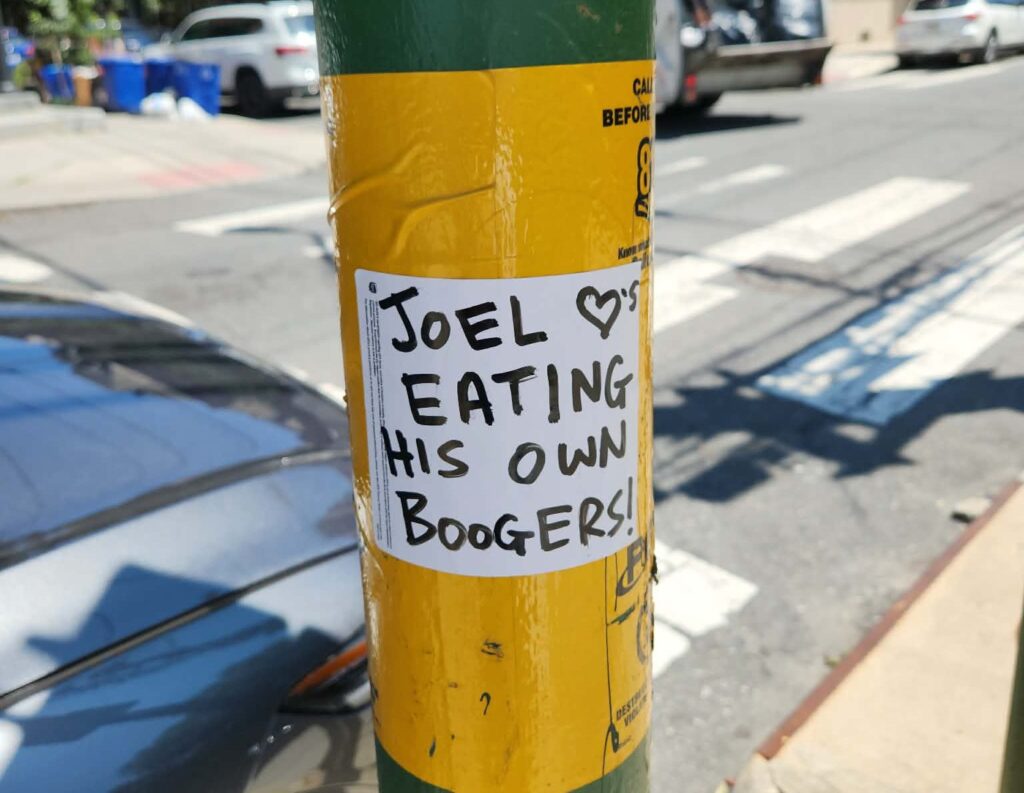 CALL
BEFORE
8
JOEL ♡'S
EATING
HIS OWN
BOOGERS!